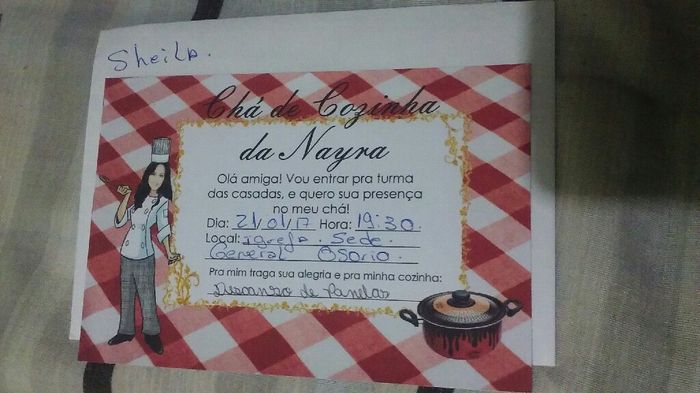 Sheila.
Chá de Cozinha
da Nayra
Olá amiga! Vou entrar pra turma
das casadas, e quero sua presença
no meu chá!
Dia: 21/01/17 Hora: 19:30.
Local: igreja. Sede.
General Osorio.
Pra mim traga sua alegria e pra minha cozinha:
Descanso de Panelas